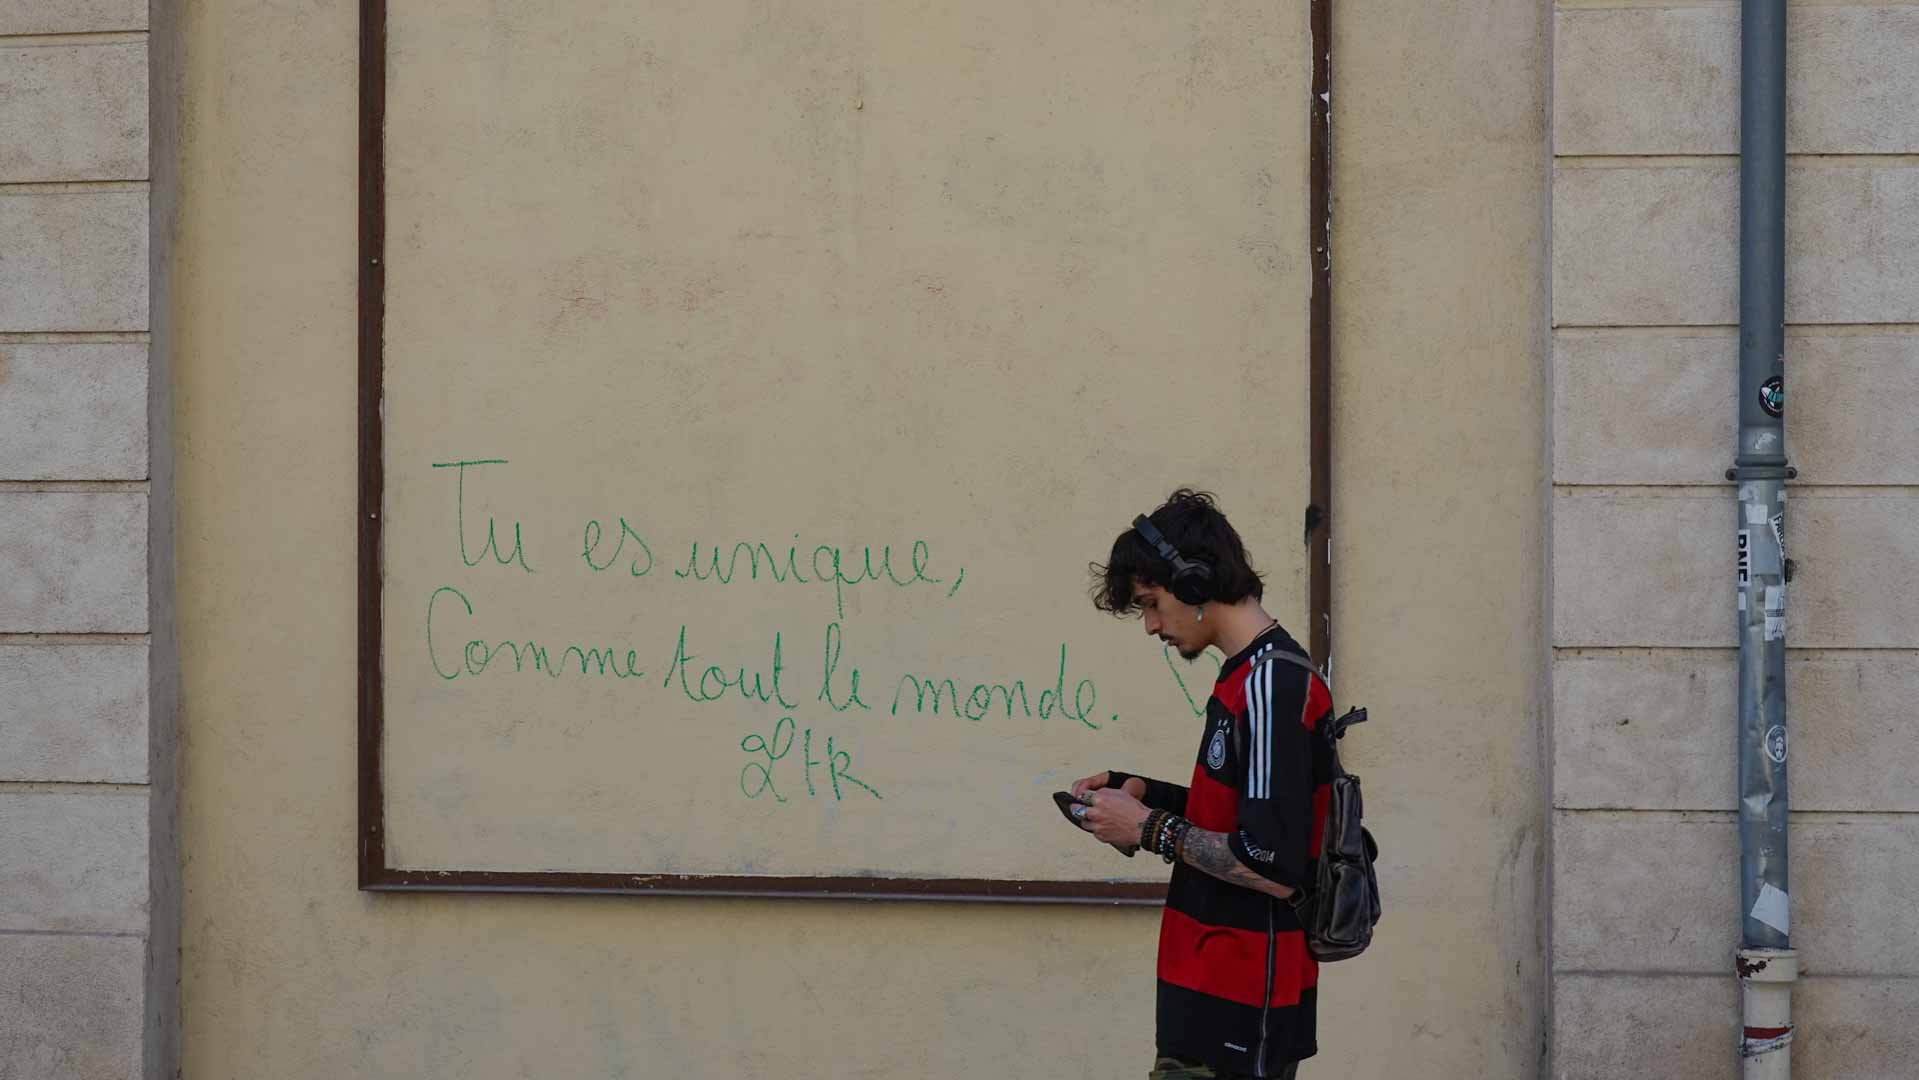 Tu es unique,
Comme tout le monde.
Ltk
2014
climacool